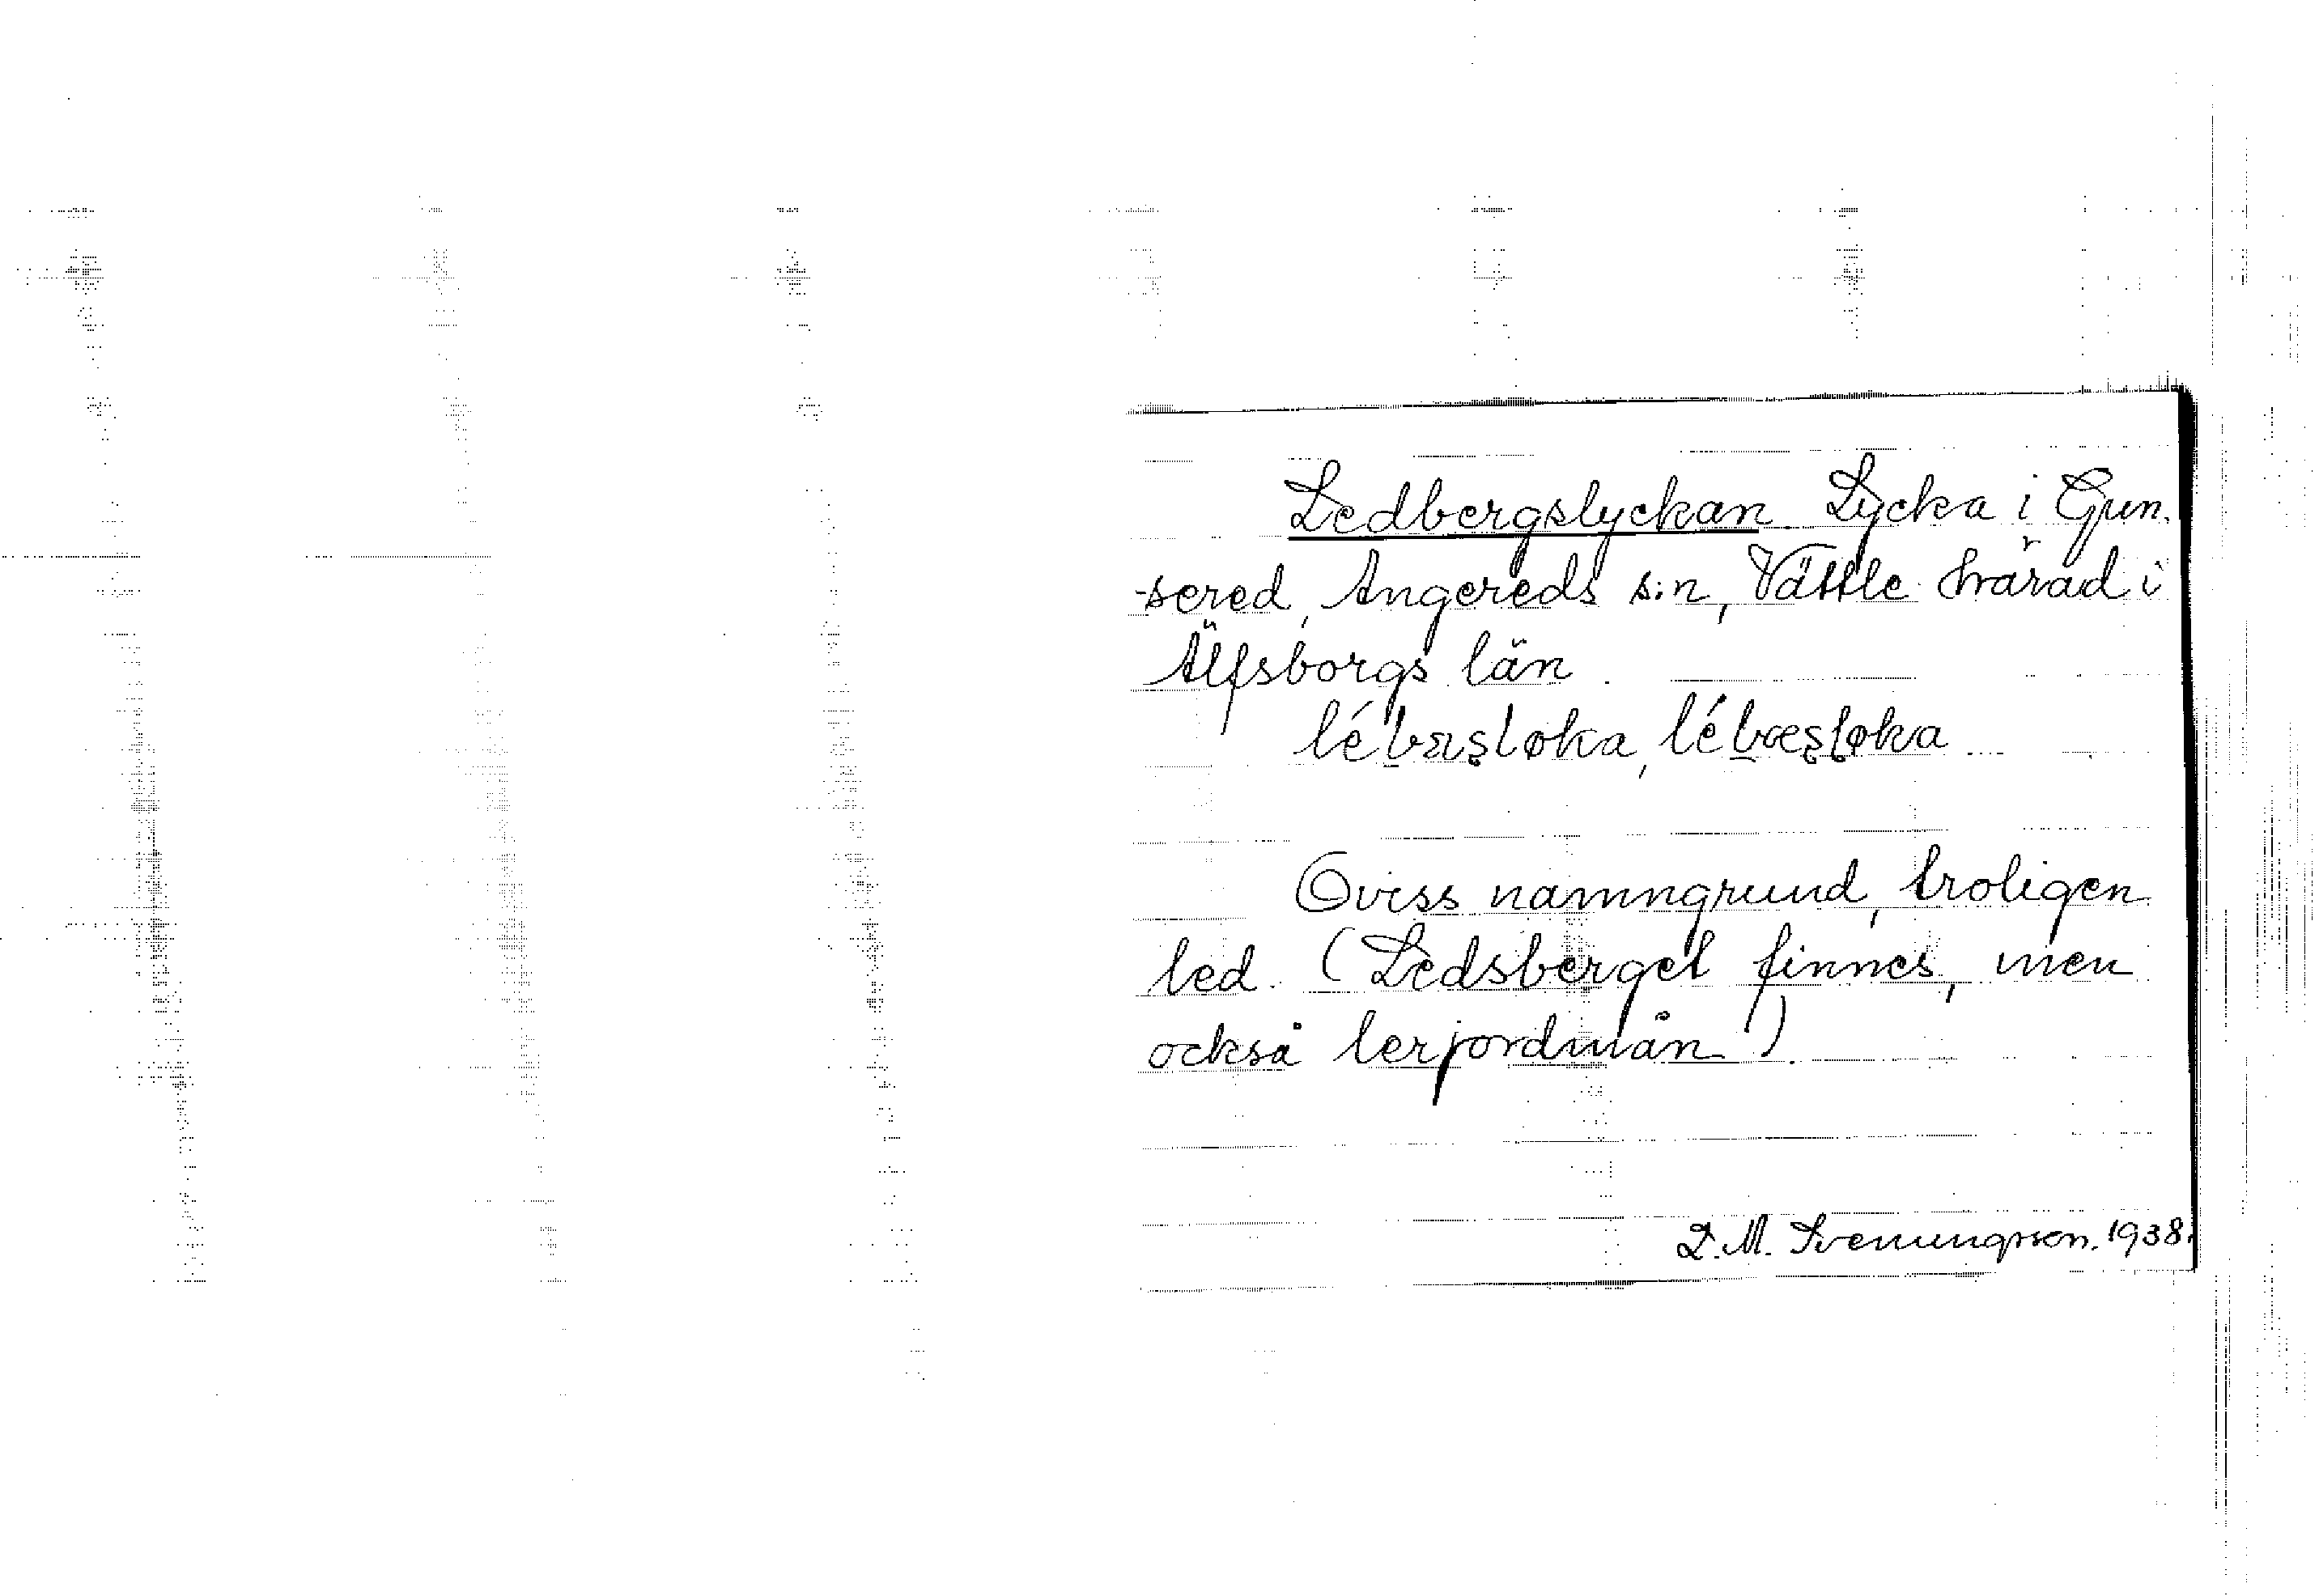 Ledbergslyckan Lycka i Gun.
-sered, Angereds s:n, Vättle härad i
Älfsborgs län.
lébæsløka, lébæsløka
Oviss namngrund, troligen
led. (Ledsberget finnes, men
också lerjordmån).
D. M. Svenungsson. 1938.